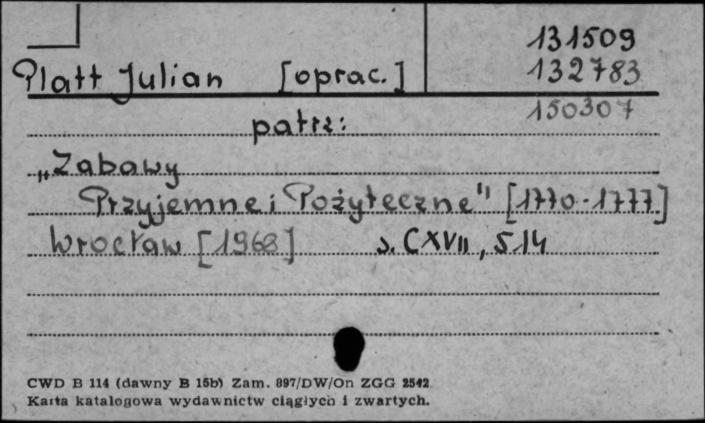 131509
Platt Julian [oprac.] 132783
150307
patrz:
„Zabawy
Przyjemne i Pożyteczne" [1770-1777]
Wrocław [1968] s. CXVII, 514
CWD B 114 (dawny B 15b) Zam. 897/DW/On ZGG 2542
Karta katalogowa wydawnictw ciągłych i zwartych.